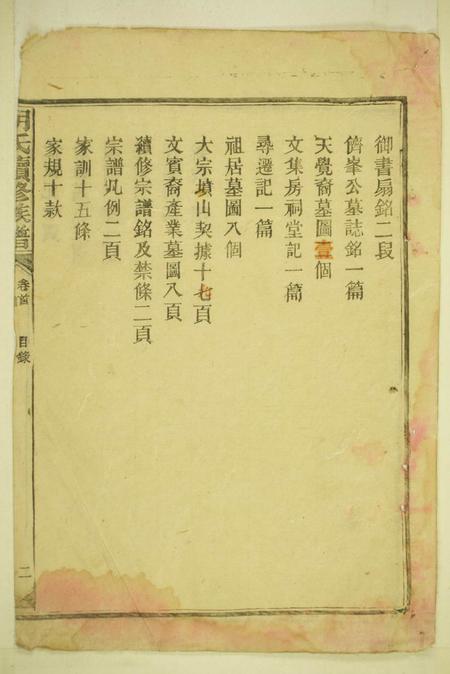 御書扇銘二段
儕峯公墓誌銘一篇
天覺裔墓圖壹個
文集房祠堂記一篇
尋遷記一篇
祖居墓圖八個
大宗墳山契據十七頁
文賓裔產業墓圖八頁
續修宗譜銘及禁條二頁
宗譜凡例二頁
家訓十五條
家規十款
氏續修族譜
卷首
目錄
二